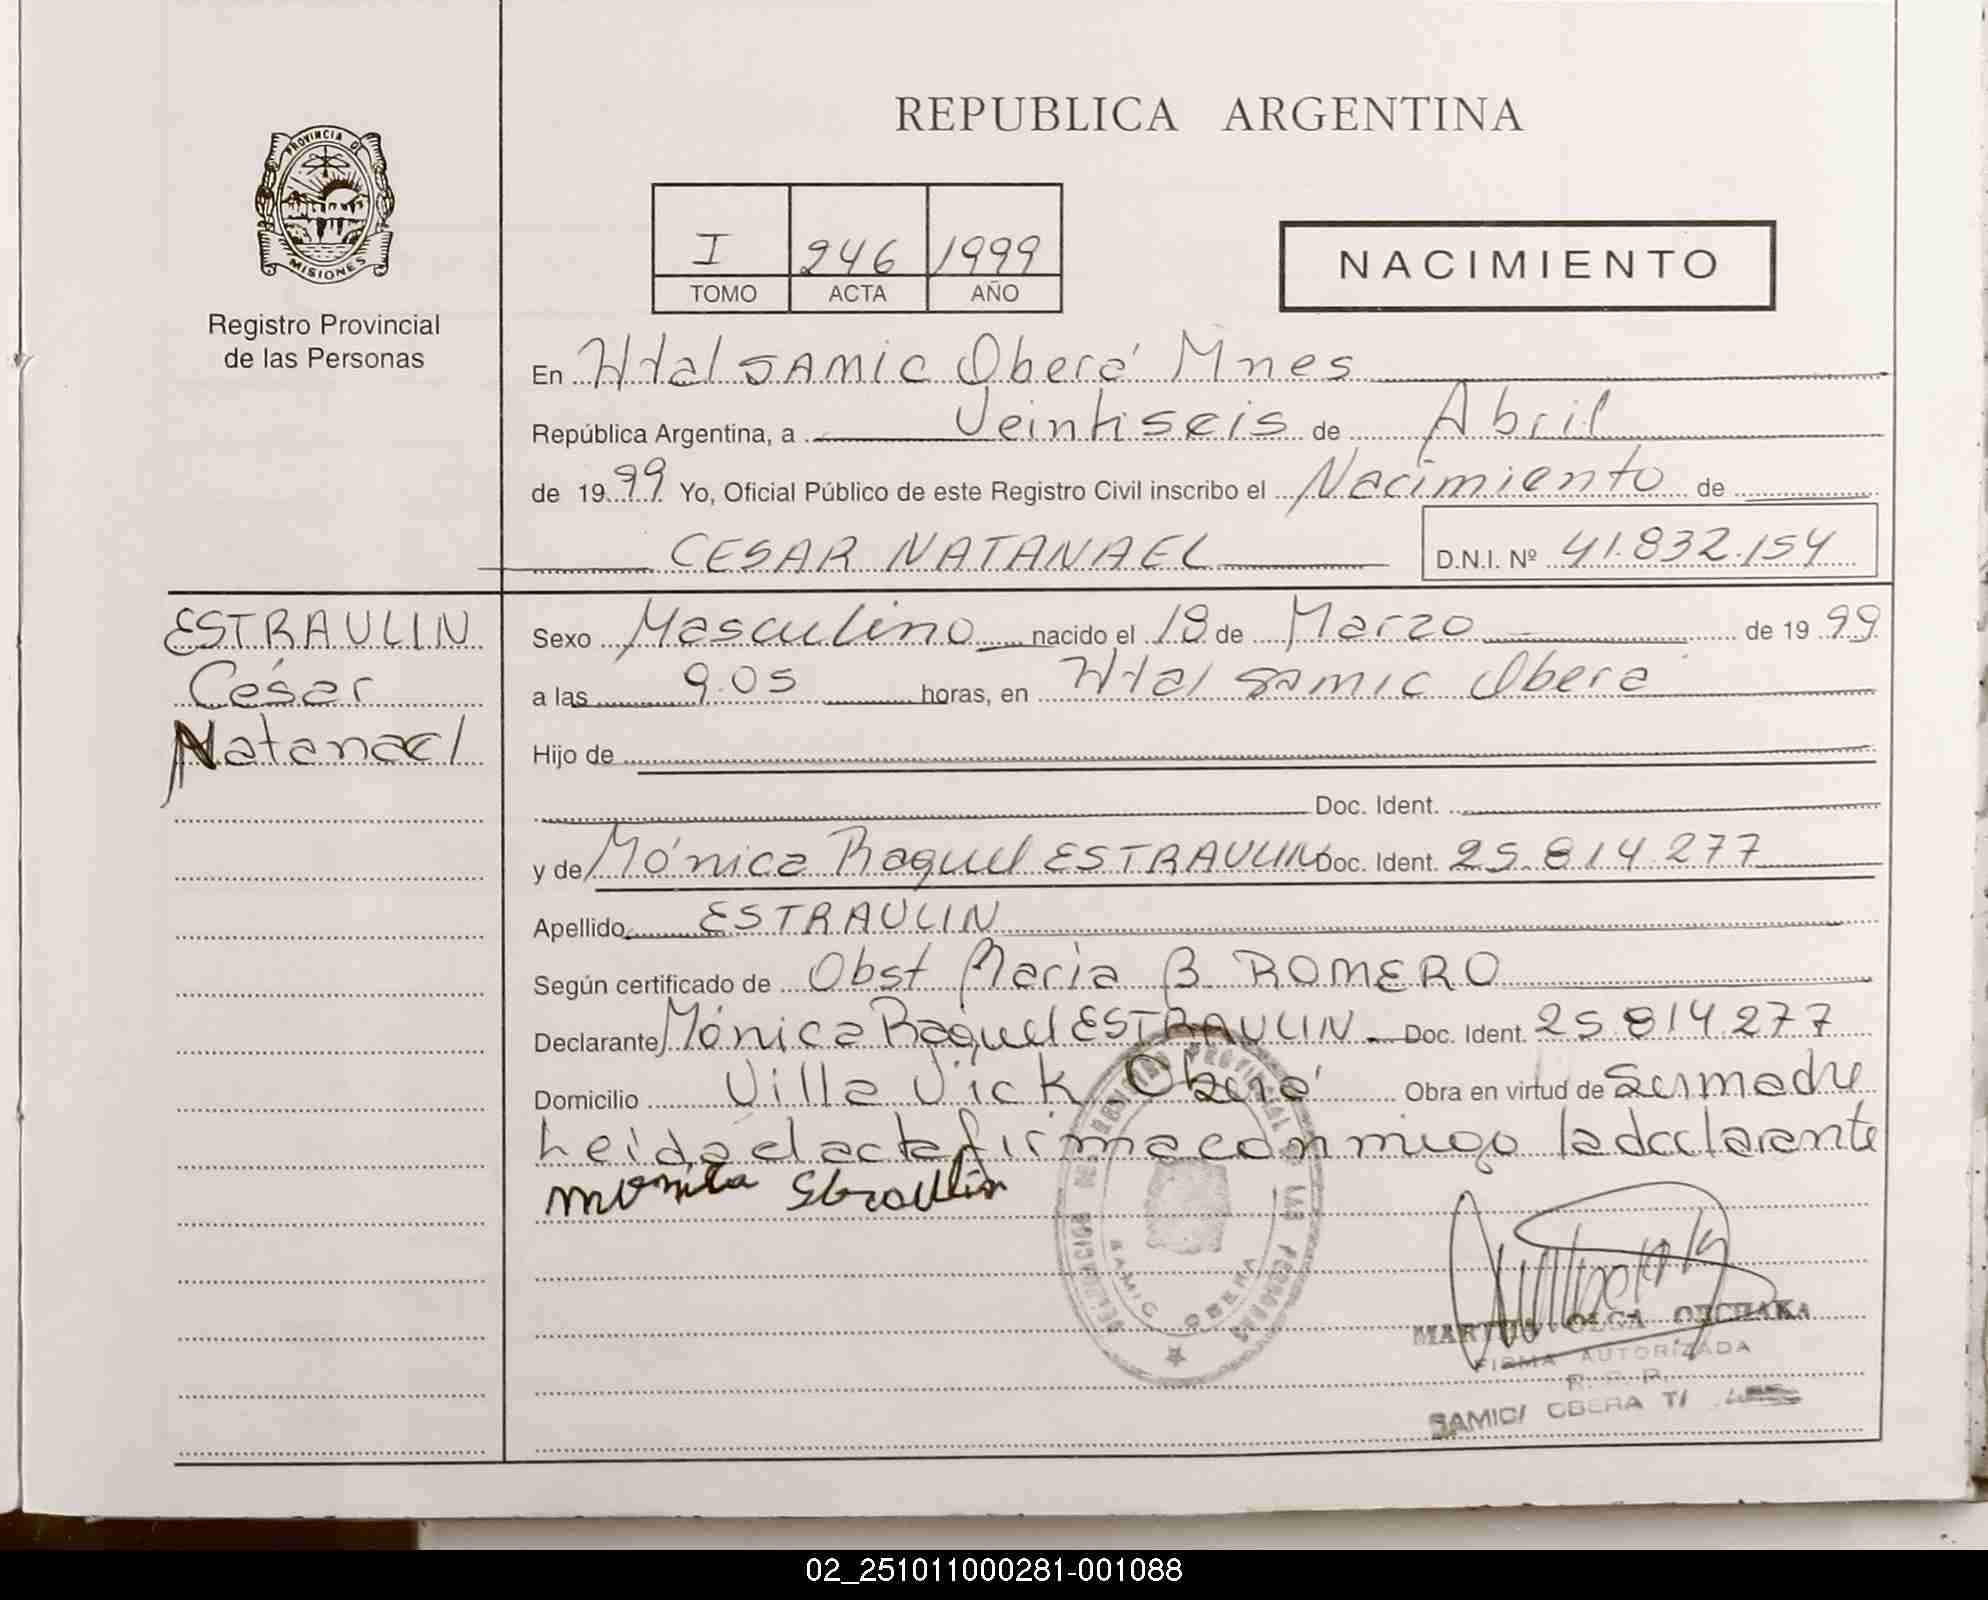 REPUBLICA ARGENTINA
PROVINCIA DE
MISIONES
Registro Provincial
de las Personas
I 246 1999
TOMO ACTA AÑO
NACIMIENTO
En Htal SAMIC Oberá Mnes
República Argentina, a Veintiseis de Abril
de 1999 Yo, Oficial Público de este Registro Civil inscribo el Nacimiento de
CESAR NATANAEL D.N.I. Nº 41.832.154
ESTRAULIN
César
Natanael
Sexo Masculino nacido el 18 de Marzo de 1999
a las 9.05 horas, en Htal Samic Oberá
Hijo de
Doc. Ident.
y de Mónica Raquel ESTRAULIN Doc. Ident. 25.814.277
Apellido ESTRAULIN
Según certificado de Obst Maria B. ROMERO
Declarante Mónica Raquel ESTRAULIN Doc. Ident. 25 814 277
Domicilio Villa Vick. Oberá Obra en virtud de Ser madre
Leida el acta firma conmigo la declarante
Monica Estraulin
REGISTRO PROVINCIAL DE LAS PERSONAS
SAMIC OBERA
OLGA
FIRMA AUTORIZADA
R. P. P.
SAMIC/ OBERA
02_251011000281-001088